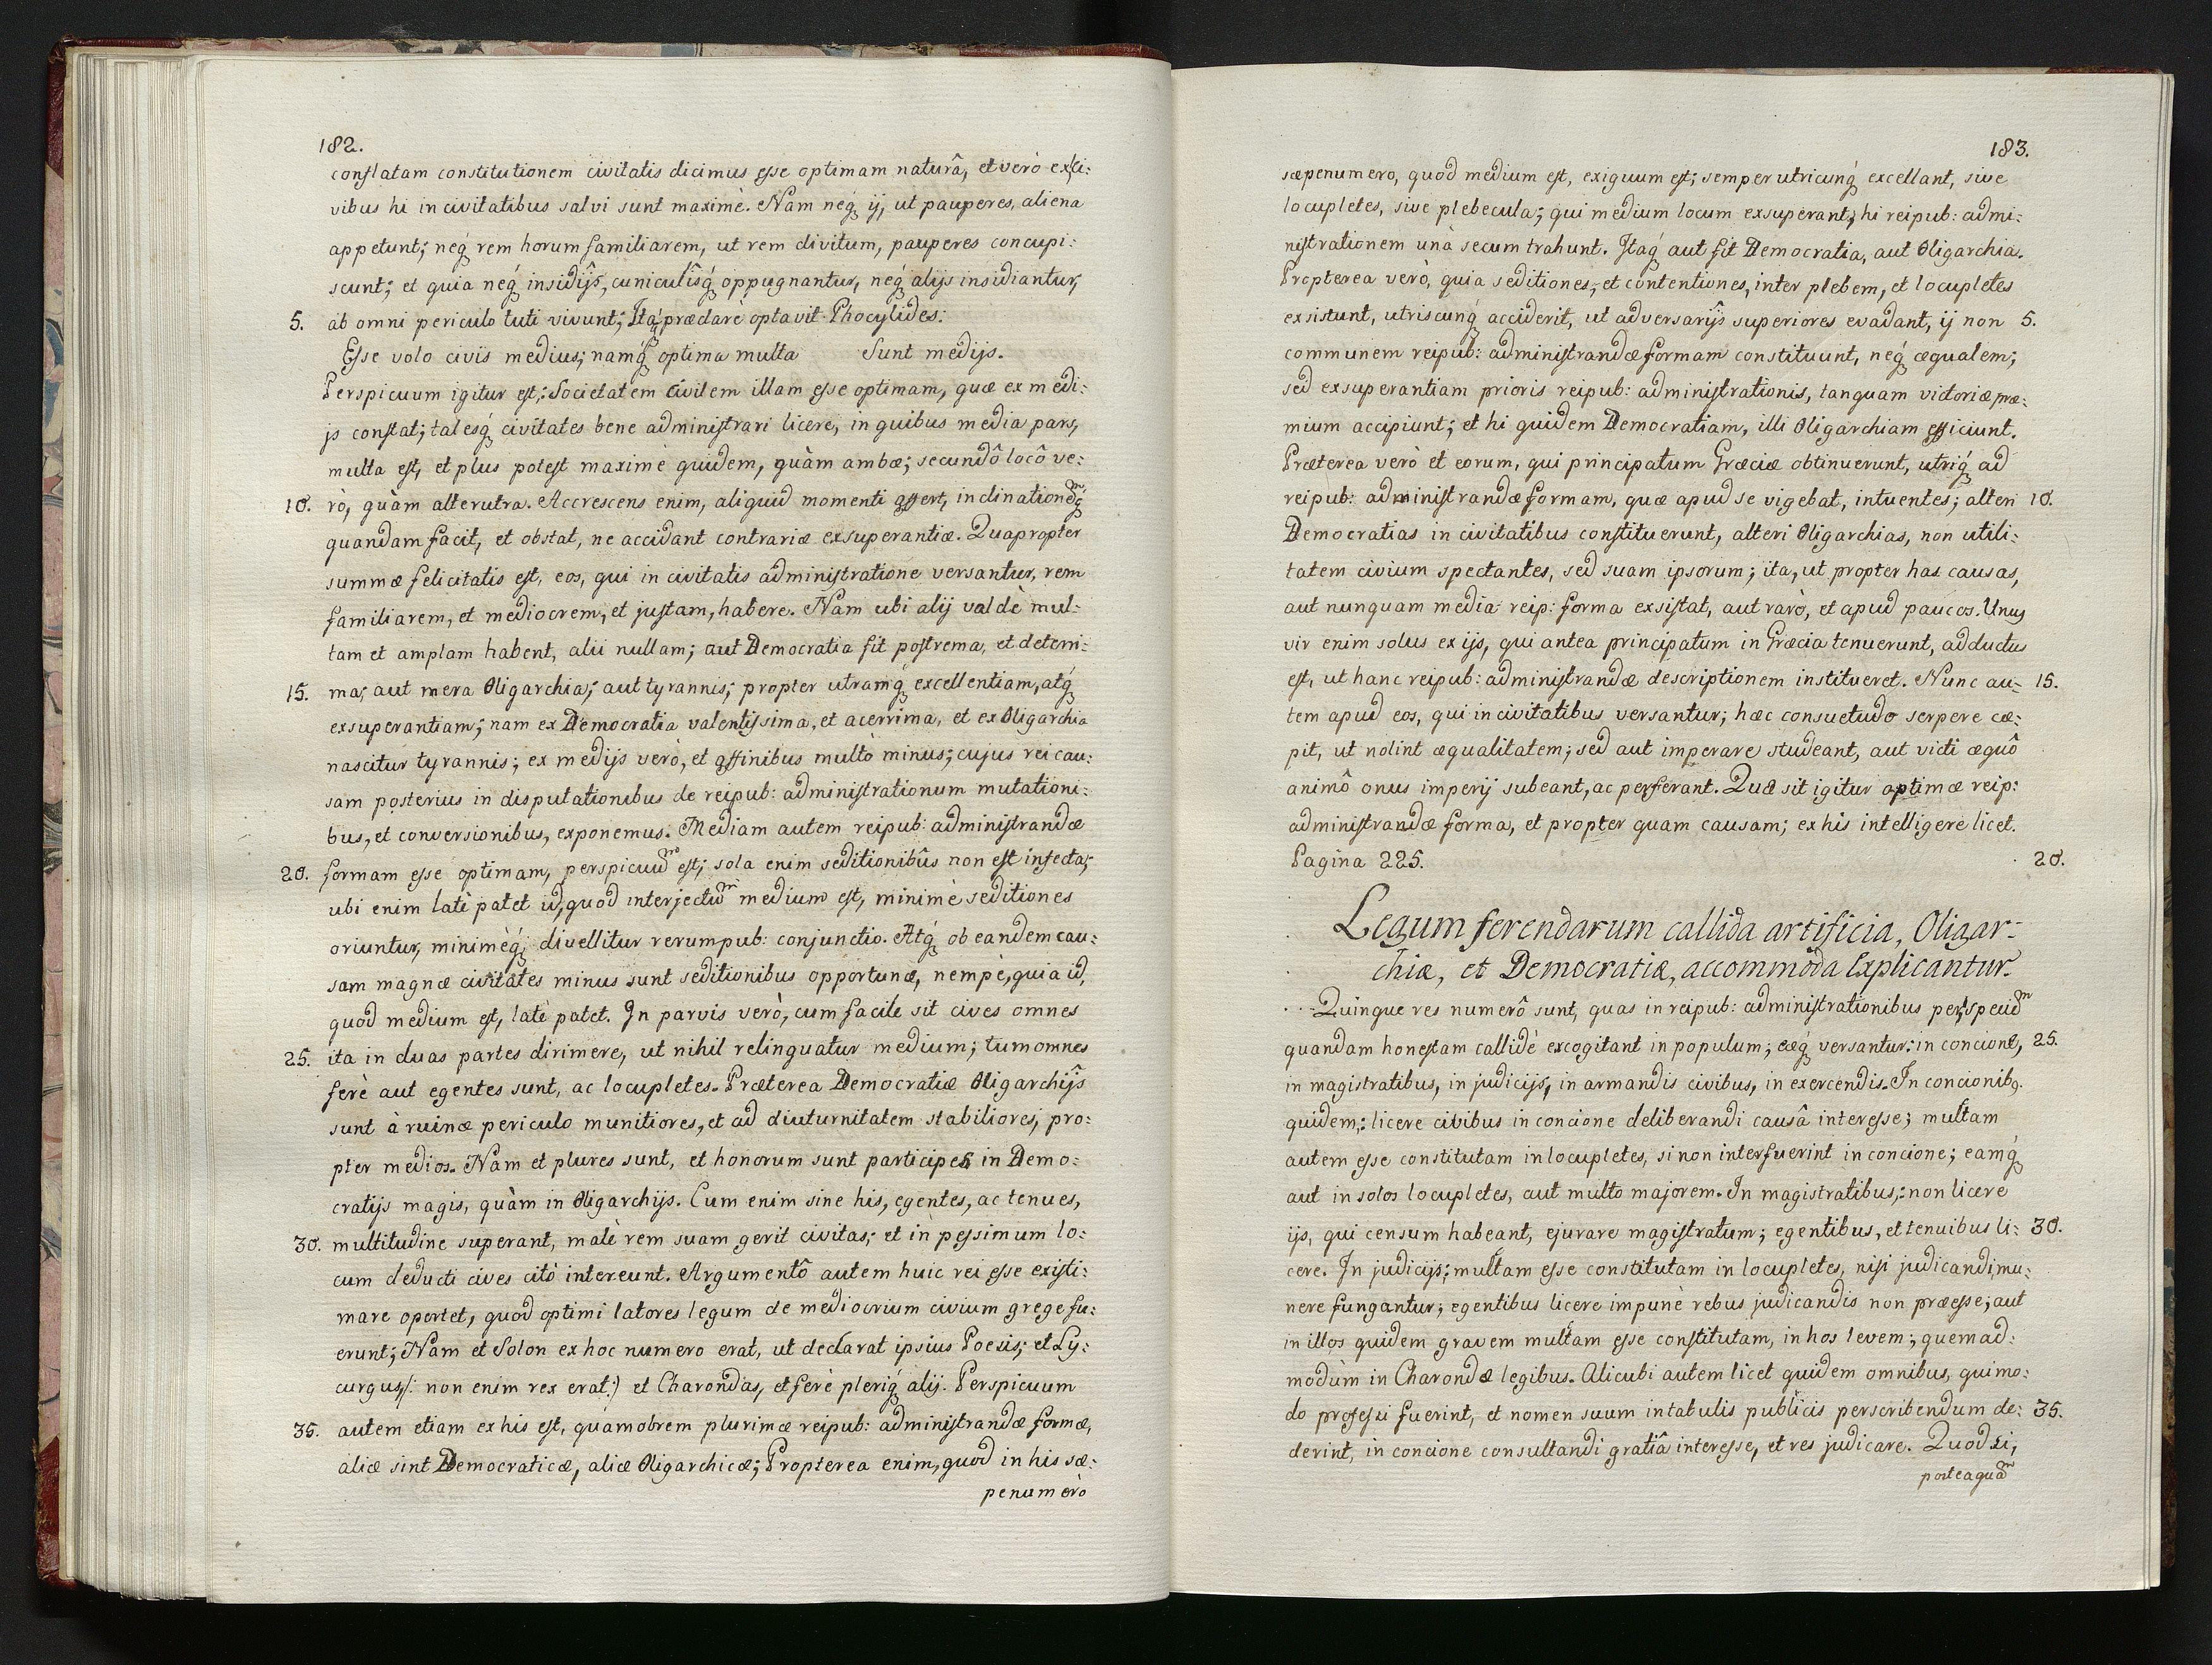 182.
conflatam constitutionem civitatis dicimus esse optimam naturâ, et verò ex ci:
vibus hi in civitatibus salvi sunt maximè. Nam neq́ ij, ut pauperes, aliena
appetunt; neq́ rem horum familiarem, ut rem divitum, pauperes concupi:
scunt; et quia neq́ insidijs, cuniculisq́ oppugnantur, neq́ alijs insidiantur,
5. ab omni periculo tuti vivunt; Itaq́ præclare optavit Phocylides:
Esse volo civis medius; namq́ optima multa Sunt medijs.
Perspicuum igitur est,: Societatem Civilem illam esse optimam, quæ ex medi:
js constat; talesq́ civitates bene administrari licere, in quibus media pars,
multa est, et plus potest maximè quidem, quàm ambæ; secundô locô ve:
10. rò, quàm alterutra. Accrescens enim, aliquid momenti affert, inclinationemq́
quandam facit, et obstat, ne accidant contrariæ exsuperantiæ. Quapropter
summæ felicitatis est, eos, qui in civitatis administratione versantur, rem
familiarem, et mediocrem, et justam, habere. Nam ubi alij valdè mul:
tam et amplam habent, alii nullam; aut Democratia fit postrema, et deterri:
15. ma; aut mera Oligarchia; aut tyrannis; propter utramq́ excellentiam, atq́
exsuperantiam; nam ex Democratia valentissima, et acerrima, et ex Oligarchia
nascitur tyrannis; ex medijs verò, et affinibus multò minus; cujus rei cau:
sam posterius in disputationibus de reipub: administrationum mutationi:
bus, et conversionibus, exponemus. Mediam autem reipub: administrandæ
20. formam esse optimam, perspicuum est; sola enim seditionibus non est infecta;
ubi enim latè patet id, quod interjectum medium est, minimè seditiones
oriuntur, minimèq́; divellitur rerumpub: conjunctio. Atq́ ob eandem cau:
sam magnæ civitates minus sunt seditionibus opportunæ, nempè, quia id,
quod medium est, latè patet. In parvis verò, cum facile sit cives omnes
25. ita in duas partes dirimere, ut nihil relinquatur medium; tum omnes
ferè aut egentes sunt, ac locupletes. Præterea Democratiæ Oligarchijs
sunt à ruinæ periculo munitiores, et ad diuturnitatem stabiliores, pro:
pter medios. Nam et plures sunt, et honorum sunt participes in Demo:
cratijs magis, quàm in Oligarchijs. Cum enim sine his, egentes, ac tenues,
30. multitudine superant, malè rem suam gerit civitas; et in pessimum lo:
cum deducti cives citò intereunt. Argumentô autem huic rei esse existi:
mare oportet, quod optimi latores legum de mediocrium civium grege fu:
erunt; Nam et Solon ex hoc numero erat, ut declarat ipsius Poesis; et Ly:
curgus /: non enim rex erat:) et Charondas, et ferè pleriq́ alij. Perspicuum
35. autem etiam ex his est, quamobrem plurimæ reipub: administrandæ formæ,
aliæ sint Democraticæ, aliæ Oligarchicæ; Propterea enim, quod in his sæ:
penumèrò
183.
sæpenumero, quod medium est, exiguum est; semper utricunq́ excellant, sive
locupletes, sive plebecula; qui medium locum exsuperant, hi reipub: admi:
nistrationem unà secum trahunt. Itaq́ aut fit Democratia, aut Oligarchia.
Propterea verò, quia seditiones, et contentiones, inter plebem, et locupletes
exsistunt, utriscunq́ acciderit, ut adversarijs superiores evadant, ij non 5.
communem reipub: administrandæ formam constituunt, neq́ æqualem;
sed exsuperantiam prioris reipub: administrationis, tanquam victoriæ præ:
mium accipiunt; et hi quidem Democratiam, illi Oligarchiam efficiunt.
Præterea verò et eorum, qui principatum Græciæ obtinuerunt, utriq́ ad
reipub: administrandæ formam, quæ apud se vigebat, intuentes; alteri 10.
Democratias in civitatibus constituerunt, alteri Oligarchias, non utili:
tatem civium spectantes, sed suam ipsorum; ita, ut propter has causas,
aut nunquam media reip: forma exsistat, aut rarò, et apud paucos. Unus
vir enim solus ex ijs, qui antea principatum in Græcia tenuerunt, adductus
est, ut hanc reipub: administrandæ descriptionem institueret. Nunc au: 15.
tem apud eos, qui in civitatibus versantur; hæc consuetudo serpere cæ:
pit, ut nolint æqualitatem; sed aut imperare studeant, aut victi æquô
animô onus imperij subeant, ac perferant. Quæ sit igitur optimæ reip:
administrandæ forma, et propter quam causam; ex his intelligere licet.
Pagina 225. 20.
Legum ferendarum callida artificia, Oligar:
chiæ, et Democratiæ, accommoda Explicantur.
Quinque res numerô sunt, quas in reipub: administrationibus per speciem
quandam honestam callidè excogitant in populum; eæq́ versantur: in concione, 25.
in magistratibus, in judicijs, in armandis civibus, in exercendis. In concionibq.
quidem,: licere civibus in concione deliberandi causâ interesse; multam
autem esse constitutam in locupletes, si non interfuerint in concione; eamq́
aut in solos locupletes, aut multo majorem. In magistratibus,: non licere
ijs, qui censum habeant, ejurare magistratum; egentibus, et tenuibus li: 30.
cere. In judicijs; multam esse constitutam in locupletes, nisi judicandi mu:
nere fungantur; egentibus licere impunè rebus judicandis non præesse; aut
in illos quidem gravem multam esse constitutam, in hos levem; quemad:
modùm in Charondæ legibus. Alicubi autem licet quidem omnibus, qui mo:
do professi fuerint, et nomen suum in tabulis publicis perscribendum de: 35.
derint, in concione consultandi gratiâ interesse, et res judicare. Quod si,
posteaquam